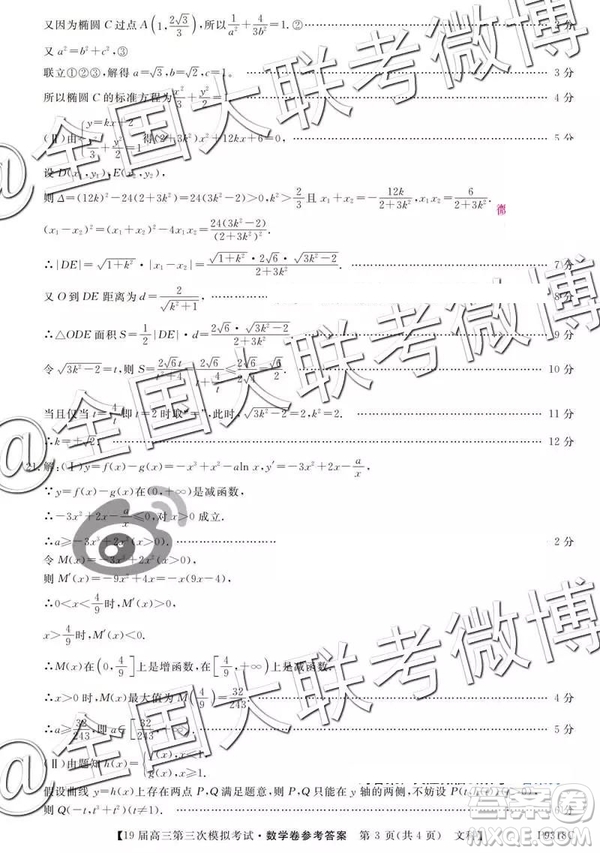 又因为椭圆 C 过点 A(1, 2√3/3), 所以 1/a² + 4/3b² = 1. ② 3 分
又 a² = b² + c², ③
联立①②③, 解得 a=√3, b=√2, c=1. 3 分
所以椭圆 C 的标准方程为 x²/3 + y²/2 = 1. 4 分
(Ⅱ)由 { y=kx+2, x²/3 + y²/2 = 1 得(2+3k²)x²+12kx+6=0. 5 分
设 D(x₁,y₁), E(x₂,y₂),
则 Δ=(12k)²−24(2+3k²)=24(3k²−2)>0, k²>2/3 且 x₁+x₂=−12k/(2+3k²), x₁x₂=6/(2+3k²).
(x₁−x₂)²=(x₁+x₂)²−4x₁x₂=24(3k²−2)/(2+3k²)².
∴|DE|=√(1+k²)·|x₁−x₂|=√(1+k²)·2√6·√(3k²−2)/(2+3k²). 7 分
又 O 到 DE 距离为 d=2/√(k²+1). 8 分
∴△ODE 面积 S=1/2|DE|·d=2√6·√(3k²−2)/(2+3k²). 9 分
令√(3k²−2)=t, 则 S=2√6t/(t²+4)=2√6/(t+4/t)≤2√6/4=√6/2. 10 分
当且仅当 t=4/t, 即 t=2 时取"=",此时, √(3k²−2)=2, k²=2. 11 分
∴k=±√2. 12 分
21.解:(Ⅰ)y=f(x)−g(x)=−x³+x²−aln x, y′=−3x²+2x−a/x,
∵y=f(x)−g(x)在(0,+∞)是减函数,
∴−3x²+2x−a/x≤0, 对 x>0 成立.
∴a≥−3x³+2x²(x>0). 2 分
令 M(x)=−3x³+2x²(x>0).
则 M′(x)=−9x²+4x=−x(9x−4).
∴0<x<4/9 时, M′(x)>0,
x>4/9 时, M′(x)<0.
∴M(x)在(0,4/9]上是增函数, 在[4/9,+∞)上是减函数.
∴x>0 时, M(x)最大值为 M(4/9)=32/243. 4 分
∴a≥32/243, 即 a∈[32/243,+∞). 5 分
(Ⅱ)由题意知
假设曲线 y=h(x)上存在两点 P、Q 满足题意, 则 P、Q 两点只能在 y 轴的两侧,
则 Q(−t, t³+t²).
【19 届高三第三次模拟考试·数学卷参考答案 第 3 页(共 4 页) 文科】 19318C
@全国大联考微博
@全国大联考微博
@全国大联考微博